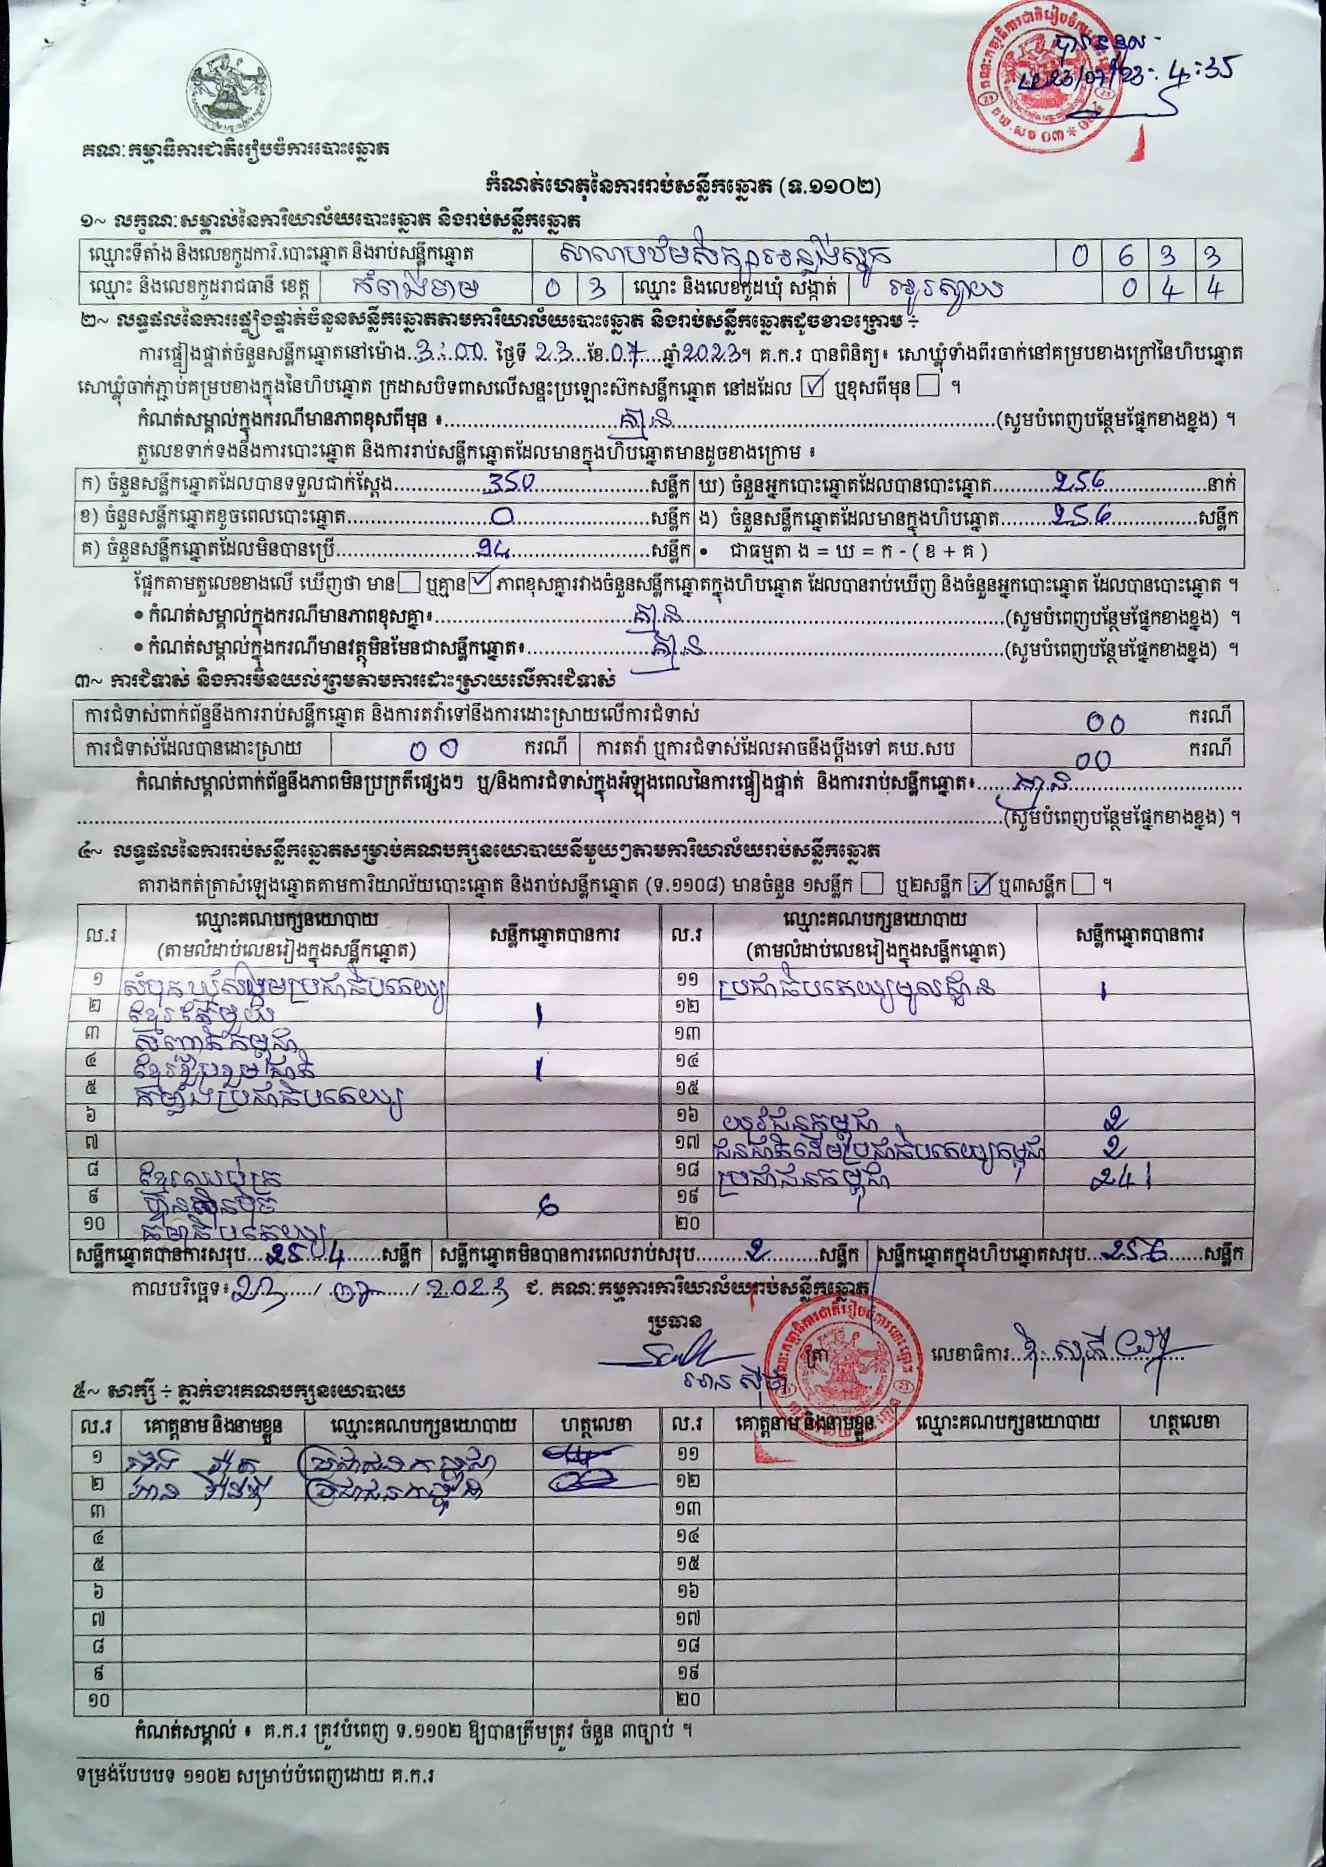 បានទទួល
23/07/23 4:35
គណៈកម្មាធិការជាតិរៀបចំការបោះឆ្នោត
កំណត់ហេតុនៃការរាប់សន្លឹកឆ្នោត (ទ.១១០២)
១~ លក្ខណៈសម្គាល់នៃការិយាល័យបោះឆ្នោត និងរាប់សន្លឹកឆ្នោត
ឈ្មោះទីតាំង និងលេខកូដការិ.បោះឆ្នោត និងរាប់សន្លឹកឆ្នោត សាលាបឋមសិក្សា 0 6 3 3
ឈ្មោះ និងលេខកូដរាជធានី ខេត្ត កំពង់ចាម 0 3 ឈ្មោះ និងលេខកូដឃុំ សង្កាត់ អូរស្វាយ 0 4 4
២~ លទ្ធផលនៃការផ្ទៀងផ្ទាត់ចំនួនសន្លឹកឆ្នោតតាមការិយាល័យបោះឆ្នោត និងរាប់សន្លឹកឆ្នោតដូចខាងក្រោម ÷
ការផ្ទៀងផ្ទាត់ចំនួនសន្លឹកឆ្នោតនៅម៉ោង 3:00 ថ្ងៃទី 23 ខែ 07 ឆ្នាំ 2023។ គ.ក.រ បានពិនិត្យ៖ សោឃ្លុំទាំងពីរចាក់នៅគម្របខាងក្រៅនៃហិបឆ្នោត
សោឃ្លុំចាក់ភ្ជាប់គម្របខាងក្នុងនៃហិបឆ្នោត ក្រដាសបិទពាសលើសន្ទះប្រឡោះស៊កសន្លឹកឆ្នោត នៅដដែល ☑ ឬខុសពីមុន ☐ ។
កំណត់សម្គាល់ក្នុងករណីមានភាពខុសពីមុន ៖ គ្មាន (សូមបំពេញបន្ថែមផ្នែកខាងខ្នង) ។
តួលេខទាក់ទងនឹងការបោះឆ្នោត និងការរាប់សន្លឹកឆ្នោតដែលមានក្នុងហិបឆ្នោតមានដូចខាងក្រោម ៖
ក) ចំនួនសន្លឹកឆ្នោតដែលបានទទួលជាក់ស្តែង 350 សន្លឹក ឃ) ចំនួនអ្នកបោះឆ្នោតដែលបានបោះឆ្នោត 256 នាក់
ខ) ចំនួនសន្លឹកឆ្នោតខូចពេលបោះឆ្នោត 0 សន្លឹក ង) ចំនួនសន្លឹកឆ្នោតដែលមានក្នុងហិបឆ្នោត 256 សន្លឹក
គ) ចំនួនសន្លឹកឆ្នោតដែលមិនបានប្រើ 94 សន្លឹក • ជាធម្មតា ង = ឃ = ក - ( ខ + គ )
ផ្អែកតាមតួលេខខាងលើ ឃើញថា មាន ☐ ឬគ្មាន ☑ ភាពខុសគ្នារវាងចំនួនសន្លឹកឆ្នោតក្នុងហិបឆ្នោត ដែលបានរាប់ឃើញ និងចំនួនអ្នកបោះឆ្នោត ដែលបានបោះឆ្នោត ។
• កំណត់សម្គាល់ក្នុងករណីមានភាពខុសគ្នា៖ គ្មាន (សូមបំពេញបន្ថែមផ្នែកខាងខ្នង) ។
• កំណត់សម្គាល់ក្នុងករណីមានវត្ថុមិនមែនជាសន្លឹកឆ្នោត៖ គ្មាន (សូមបំពេញបន្ថែមផ្នែកខាងខ្នង) ។
៣~ ការជំទាស់ និងការមិនយល់ព្រមតាមការដោះស្រាយលើការជំទាស់
ការជំទាស់ពាក់ព័ន្ធនឹងការរាប់សន្លឹកឆ្នោត និងការតវ៉ាទៅនឹងការដោះស្រាយលើការជំទាស់ 00 ករណី
ការជំទាស់ដែលបានដោះស្រាយ 00 ករណី ការតវ៉ា ឬការជំទាស់ដែលអាចនឹងប្តឹងទៅ គឃ.សប 00 ករណី
កំណត់សម្គាល់ពាក់ព័ន្ធនឹងភាពមិនប្រក្រតីផ្សេងៗ ឬ/និងការជំទាស់ក្នុងអំឡុងពេលនៃការផ្ទៀងផ្ទាត់ និងការរាប់សន្លឹកឆ្នោត៖ គ្មាន
(សូមបំពេញបន្ថែមផ្នែកខាងខ្នង) ។
៤~ លទ្ធផលនៃការរាប់សន្លឹកឆ្នោតសម្រាប់គណបក្សនយោបាយនីមួយៗតាមការិយាល័យរាប់សន្លឹកឆ្នោត
តារាងកត់ត្រាសំឡេងឆ្នោតតាមការិយាល័យបោះឆ្នោត និងរាប់សន្លឹកឆ្នោត (ទ.១១០៨) មានចំនួន ១សន្លឹក ☐ ឬ២សន្លឹក ☑ ឬ៣សន្លឹក ☐ ។
ល.រ ឈ្មោះគណបក្សនយោបាយ (តាមលំដាប់លេខរៀងក្នុងសន្លឹកឆ្នោត) សន្លឹកឆ្នោតបានការ ល.រ ឈ្មោះគណបក្សនយោបាយ (តាមលំដាប់លេខរៀងក្នុងសន្លឹកឆ្នោត) សន្លឹកឆ្នោតបានការ
១ សំបុកឃ្មុំសង្គមប្រជាធិបតេយ្យ ១១ ប្រជាធិបតេយ្យមូលដ្ឋាន 1
២ ខ្មែរតែមួយ 1 ១២
៣ សញ្ជាតិកម្ពុជា ១៣
៤ ខ្មែររួបរួមជាតិ 1 ១៤
៥ កម្លាំងប្រជាធិបតេយ្យ ១៥
៦ ១៦ យុវជនកម្ពុជា 2
៧ ១៧ ជនជាតិដើមប្រជាធិបតេយ្យកម្ពុជា 2
៨ ខ្មែរឈប់ក្រ ១៨ ប្រជាជនកម្ពុជា 241
៩ ហ្វ៊ុនស៊ិនប៉ិច 6 ១៩
១០ ធម្មាធិបតេយ្យ ២០
សន្លឹកឆ្នោតបានការសរុប 254 សន្លឹក សន្លឹកឆ្នោតមិនបានការពេលរាប់សរុប 2 សន្លឹក សន្លឹកឆ្នោតក្នុងហិបឆ្នោតសរុប 256 សន្លឹក
កាលបរិច្ឆេទ៖ 23 / 07 / 2023 ជ. គណៈកម្មការការិយាល័យរាប់សន្លឹកឆ្នោត
ប្រធាន
ត្រា លេខាធិការ
៥~ សាក្សី ÷ ភ្នាក់ងារគណបក្សនយោបាយ
ល.រ គោត្តនាម និងនាមខ្លួន ឈ្មោះគណបក្សនយោបាយ ហត្ថលេខា ល.រ គោត្តនាម និងនាមខ្លួន ឈ្មោះគណបក្សនយោបាយ ហត្ថលេខា
១ ប្រជាជនកម្ពុជា ១១
២ ប្រជាជនកម្ពុជា ១២
៣ ១៣
៤ ១៤
៥ ១៥
៦ ១៦
៧ ១៧
៨ ១៨
៩ ១៩
១០ ២០
កំណត់សម្គាល់ ៖ គ.ក.រ ត្រូវបំពេញ ទ.១១០២ ឱ្យបានត្រឹមត្រូវ ចំនួន ៣ច្បាប់ ។
ទម្រង់បែបបទ ១១០២ សម្រាប់បំពេញដោយ គ.ក.រ